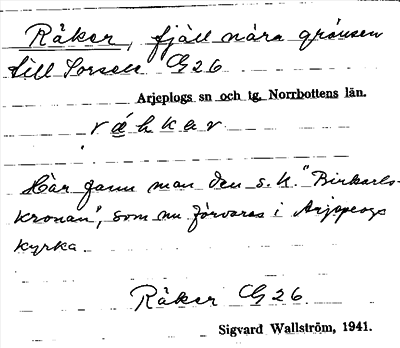 Råkar, fjäll nära gränsen
till Sorsele C926
Arjeplogs sn och tg, Norrbottens län.
råhkar
Här fann man den s.k. "Birkarls-
kronan", som nu förvaras i Arjeplogs
kyrka.
Råkar C926.
Sigvard Wallström, 1941.